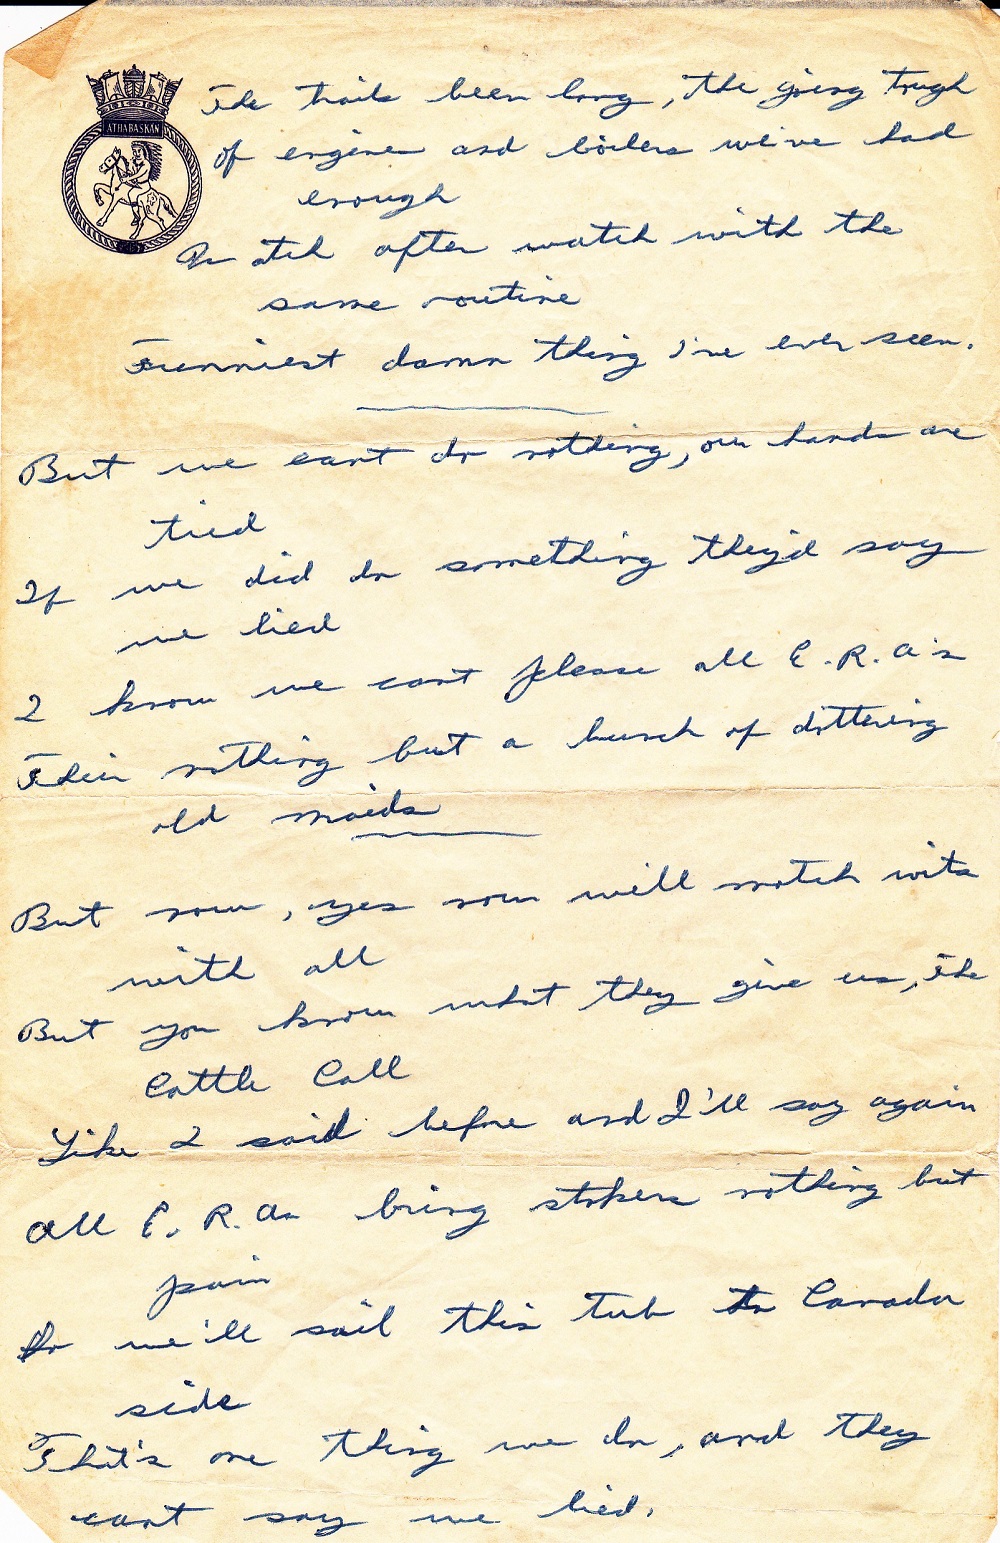 ATHABASKAN
The trails been long, the going tough
of engines and boilers we've had
enough
Watch after watch with the
same routine
Funniest damn thing I've ever seen.
But we cant do nothing, our hands are
tied
If we did do something they'd say
we lied
I know we cant please all E.R.A's
Their nothing but a bunch of dottering
old maids
But now, yes now we'll match wits
with all
But you know what they give us, the
Cattle Call
Like I said before and I'll say again
All E.R.As bring stokers nothing but
pain
So we'll sail this tub to Canada
side
That's one thing we do, and they
cant say we lied.